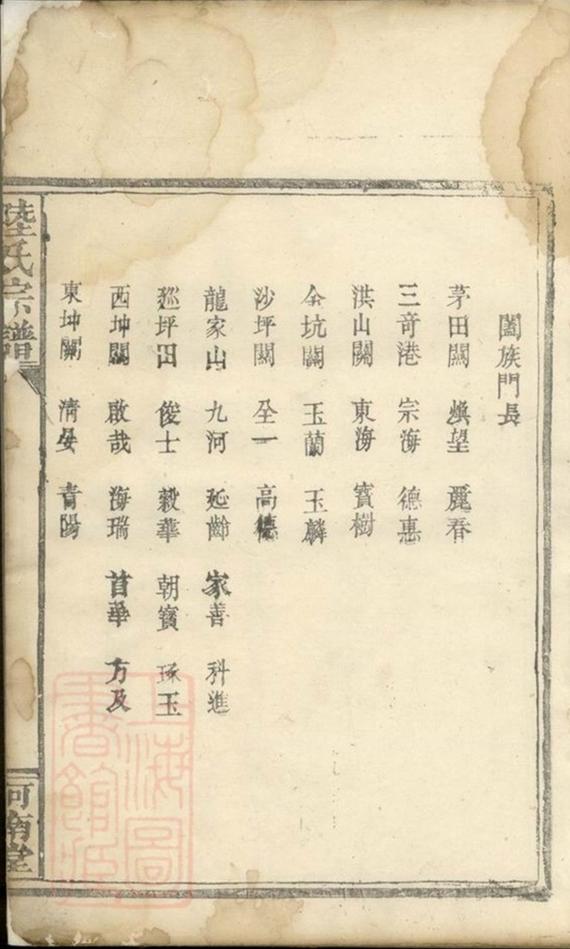 闔族門長
茅田關 煥望 麗春
三奇港 宗海 德惠
洪山關 東海 寳樹
金坑關 玉蘭 玉麟
沙坪關 全一 高德
龍家山 九河 延齡 家善 科進
廵坪田 俊士 穀華 朝寳 琢玉
西坤關 啟哉 海瑞 首華 方及
東坤關 清晏 青陽
陸氏宗譜
河南堂
上海圖書館藏